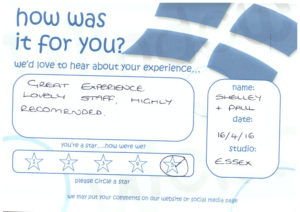 how was
it for you?
we'd love to hear about your experience...
GREAT EXPERIENCE
LOVELY STAFF. HIGHLY
RECOMENDED.
name:
SHELLEY
+ PAUL
date:
16/4/16
studio:
ESSEX
you're a star....how were we?
1 2 3 4 5
please circle a star
we may put your comments on our website or social media page